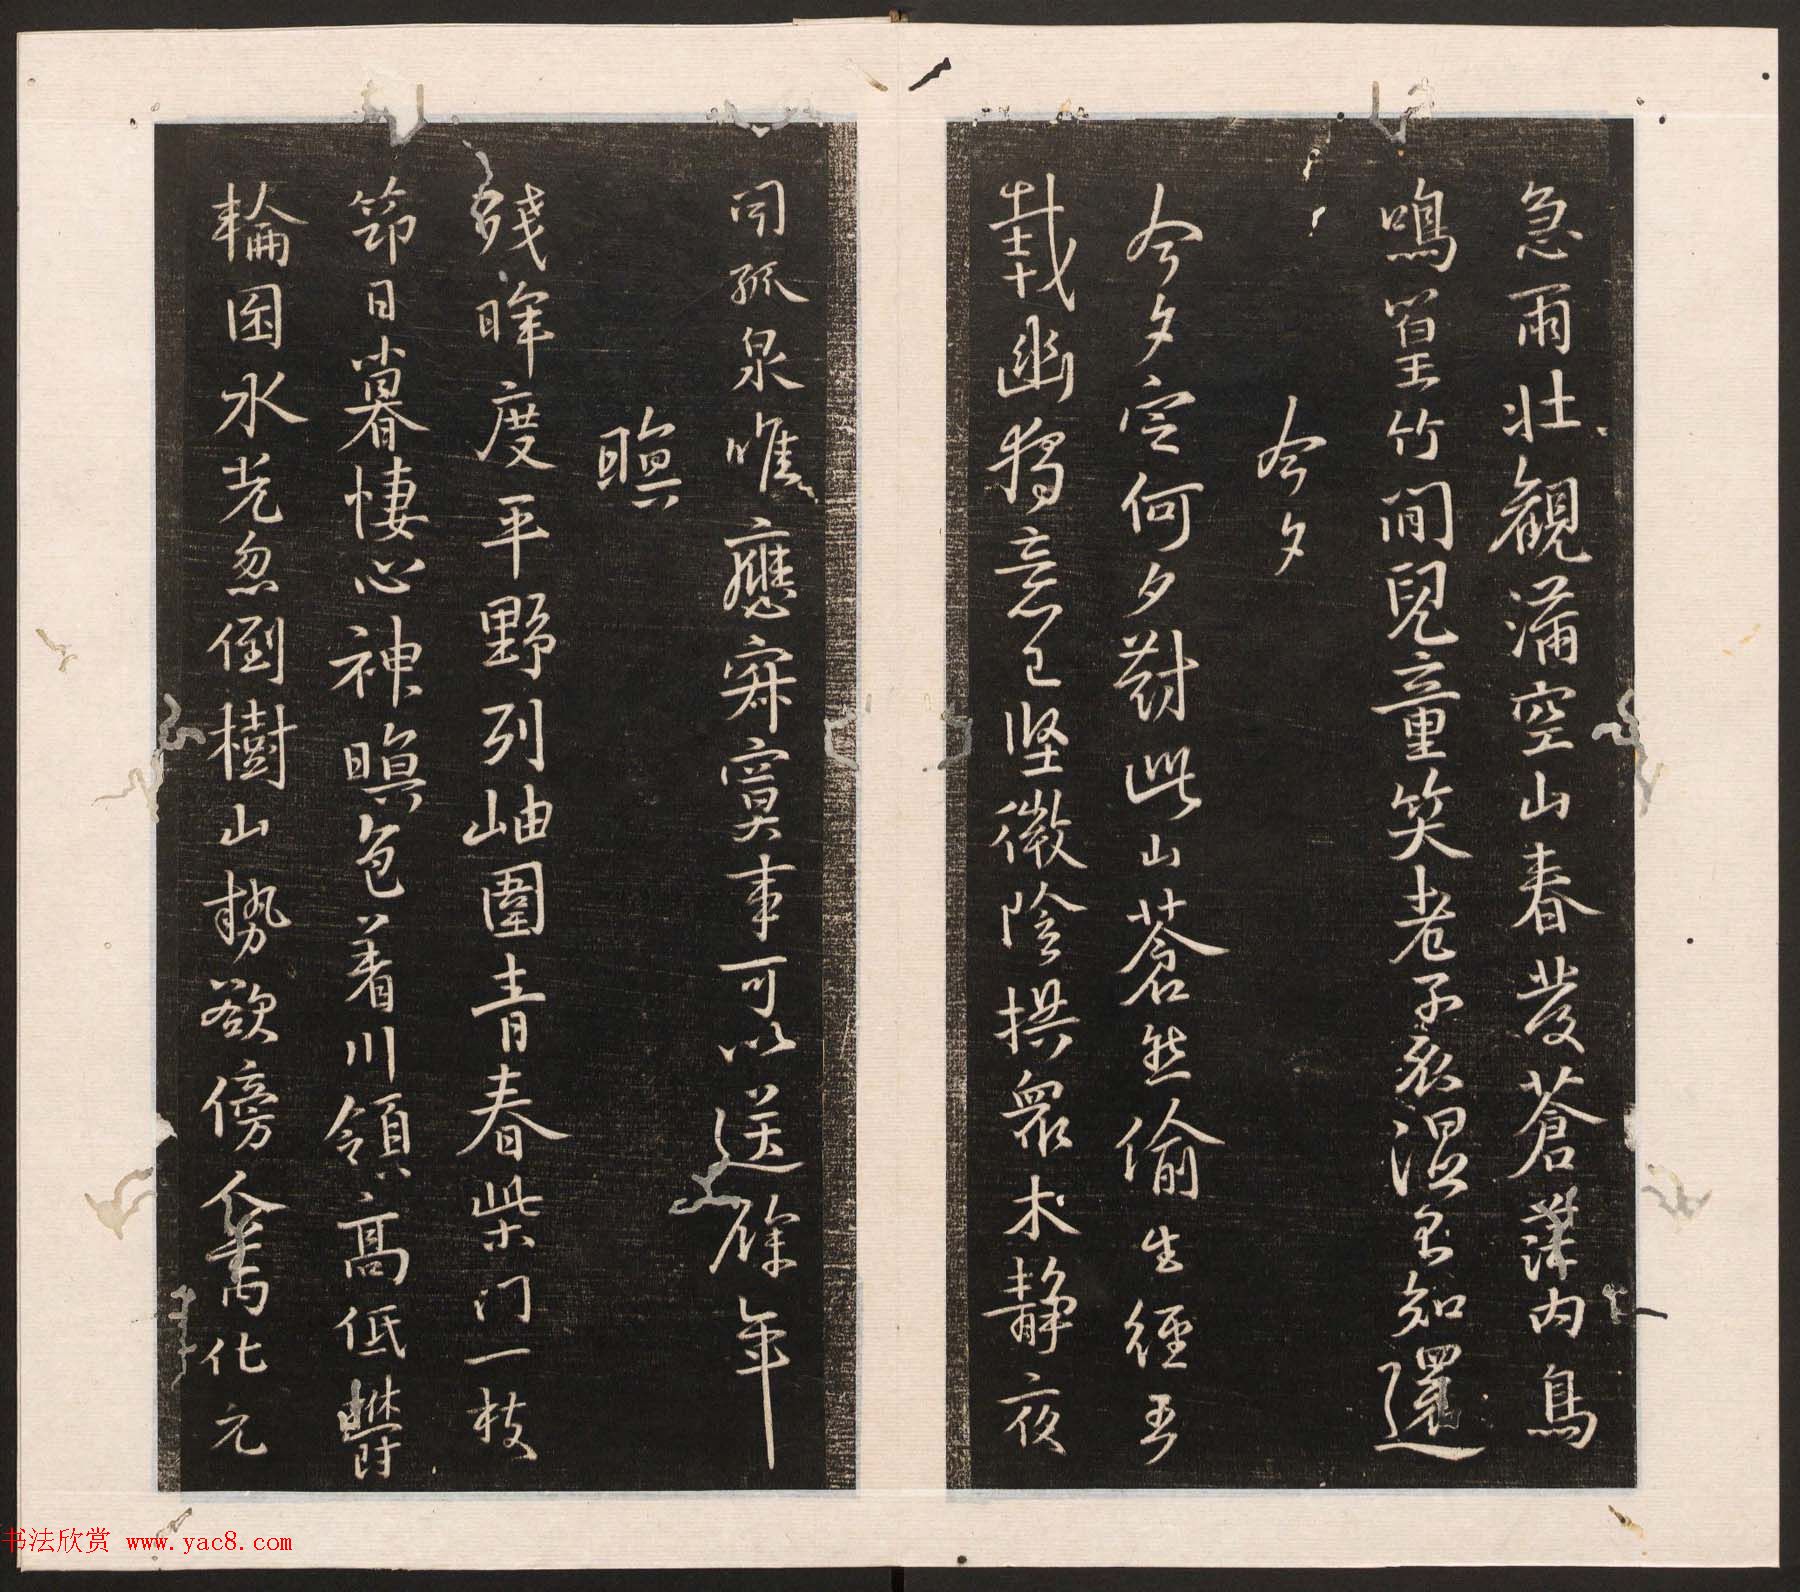 急雨壯觀滿空山春發蒼茫內鳥
鳴篁竹間兒童笑老子衣濕不知還
今夕
今夕定何夕對此山蒼然偷生經五
載幽獨意已堅微陰拱衆木靜夜
聞孤泉唯應寂寞事可以送餘年
暝
殘暉度平野列岫圍青春柴門一枝
筇日暮棲心神暝色著川領高低鬱
輪囷水光忽倒樹山勢欲傍人萬化元
书法欣赏 www.yac8.com